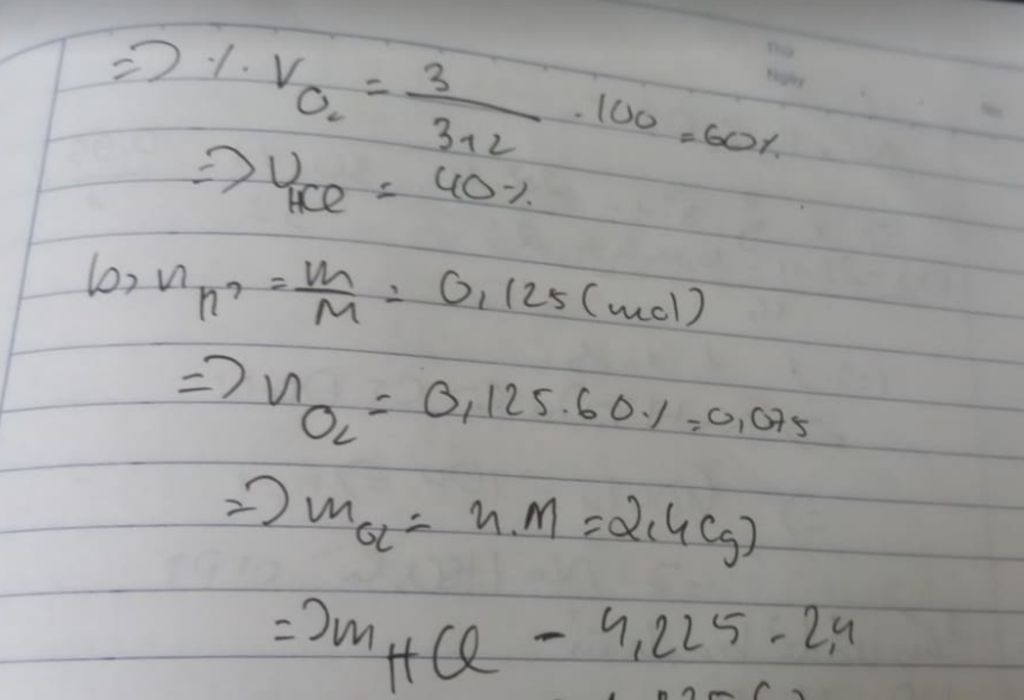 => %. V O₂ = 3 / 3+2 . 100 = 60%
=> V HCl = 40%
b, n h² = m / M = 0,125 (mol)
=> n O₂ = 0,125.60% = 0,075
=> m O₂ = n.M = 2,4 (g)
=> m HCl = 4,225 - 2,4